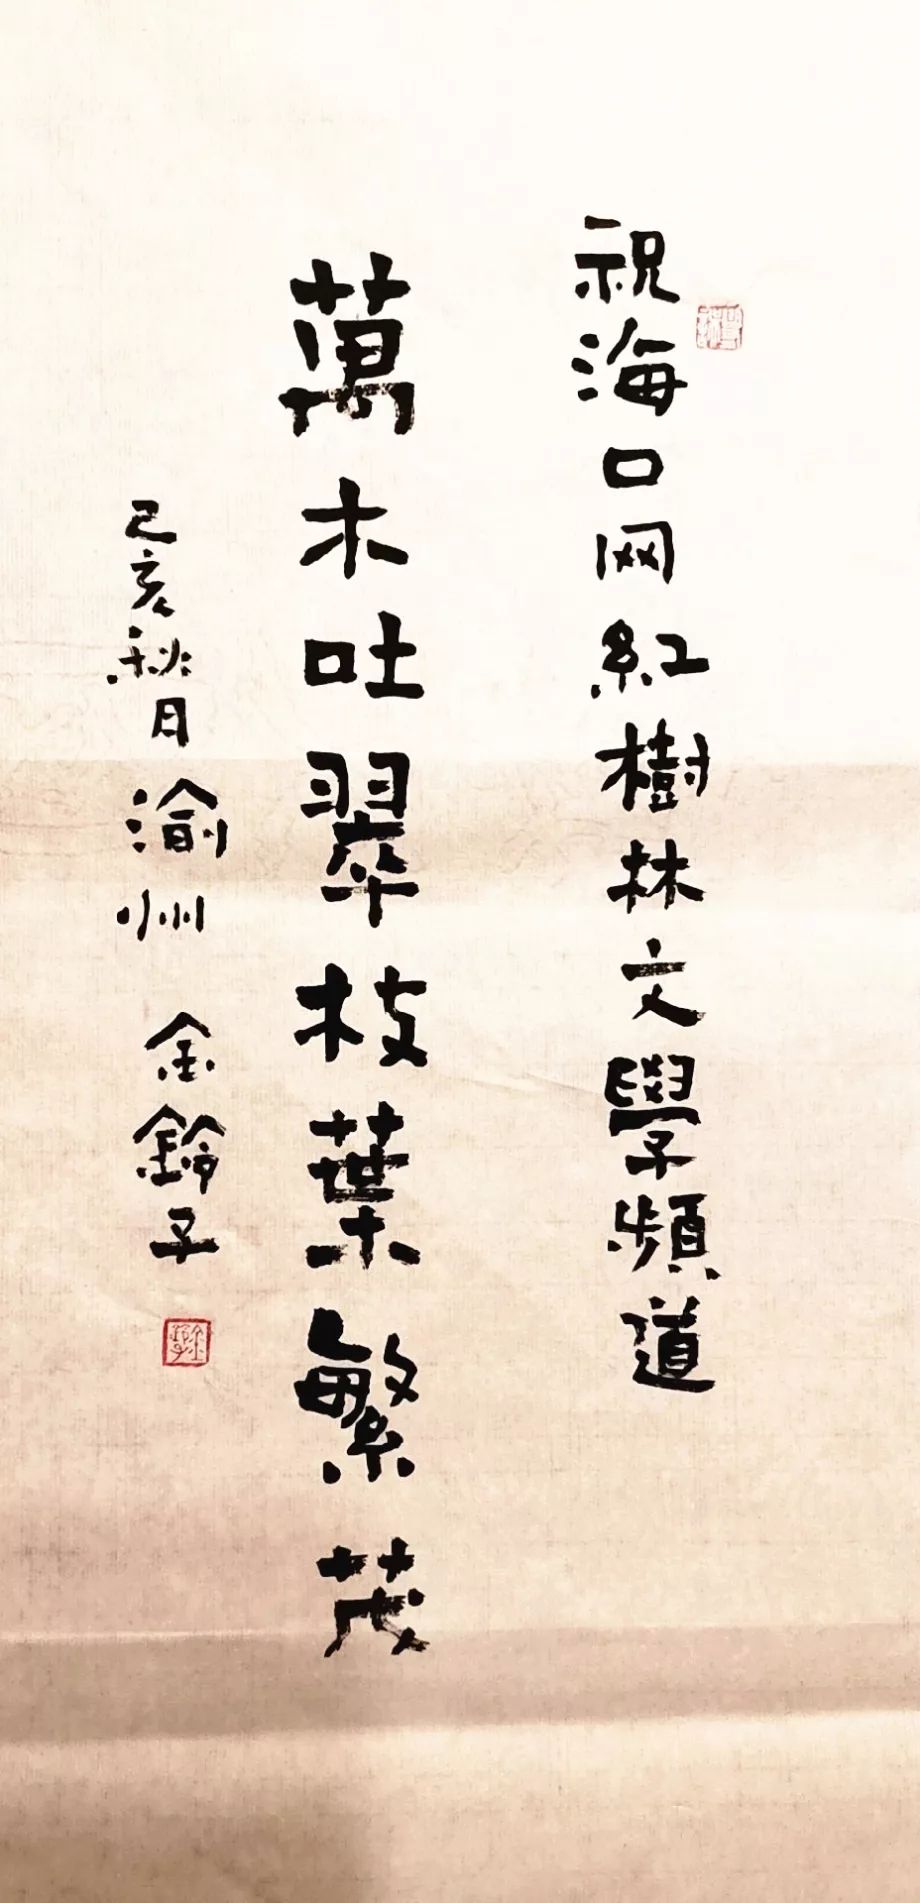 祝海口网紅樹林文學頻道
萬木吐翠枝葉繁茂
己亥秋日渝州 金鈴子